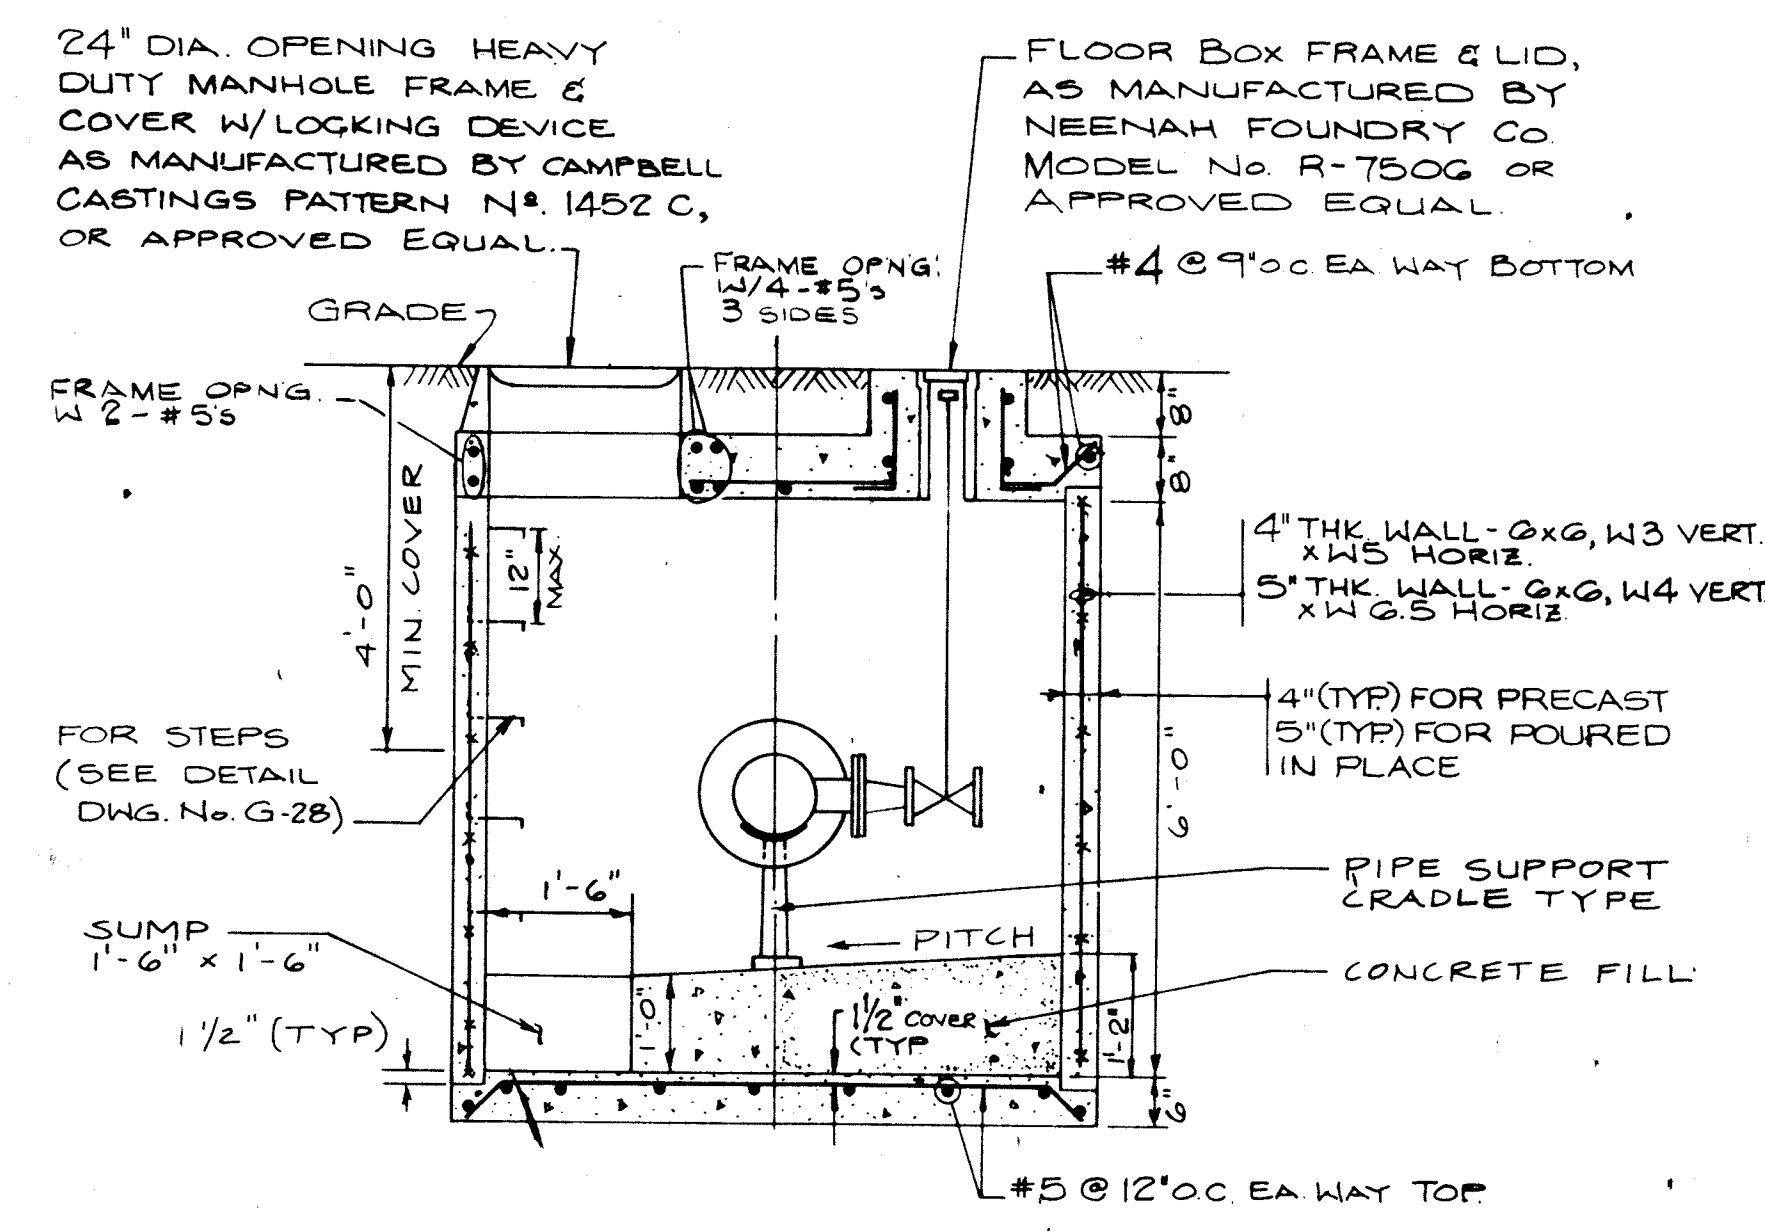 24" DIA. OPENING HEAVY
DUTY MANHOLE FRAME &
COVER W/LOCKING DEVICE
AS MANUFACTURED BY CAMPBELL
CASTINGS PATTERN No. 1452 C,
OR APPROVED EQUAL.
FLOOR BOX FRAME & LID,
AS MANUFACTURED BY
NEENAH FOUNDRY CO.
MODEL No. R-7506 OR
APPROVED EQUAL.
FRAME OPN'G.
W/4-#5's
3 SIDES
#4 @ 9" O.C. EA. WAY BOTTOM
GRADE
FRAME OPNG.
W 2-#5's
8"
8"
4'-0"
MIN. COVER
12"
MAX.
4" THK. WALL - 6x6, W3 VERT.
x W5 HORIZ.
5" THK. WALL - 6x6, W4 VERT.
x W 6.5 HORIZ.
4" (TYP.) FOR PRECAST
5" (TYP.) FOR POURED
IN PLACE
FOR STEPS
(SEE DETAIL
DWG. No. G-28)
6'-0"
PIPE SUPPORT
CRADLE TYPE
1'-6"
SUMP
1'-6" x 1'-6"
PITCH
CONCRETE FILL
1'-0"
1 1/2" COVER
(TYP
1'-2"
1 1/2" (TYP)
6"
#5 @ 12" O.C. EA. WAY TOP.